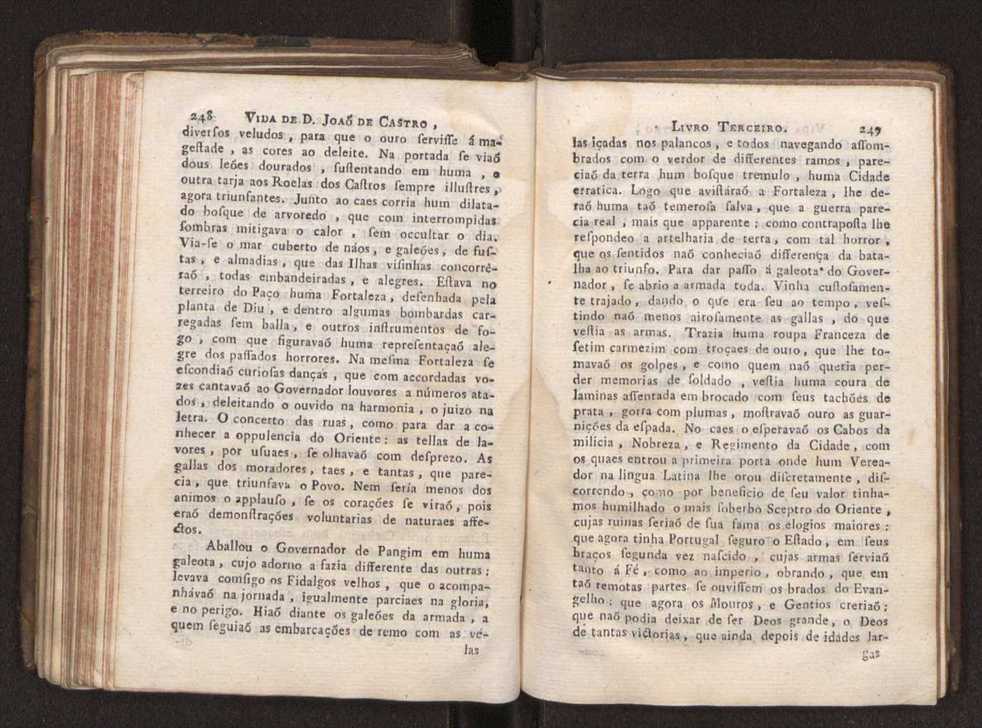 248 VIDA DE D. JOAÕ DE CASTRO ,
diverſos veludos , para que o ouro ſerviſſe á ma-
geſtade , as cores ao deleite. Na portada ſe viaõ
dous leões dourados , ſuſtentando em huma , e
outra tarja aos Roelas dos Caſtros ſempre illuſtres ,
agora triunfantes. Junto ao caes corria hum dilata-
do boſque de arvoredo , que com interrompidas
ſombras mitigava o calor , ſem occultar o dia.
Via-ſe o mar cuberto de náos , e galeões , de fuſ-
tas , e almadias , que das Ilhas viſinhas concorrê-
raõ , todas embandeiradas , e alegres. Eſtava no
terreiro do Paço huma Fortaleza , deſenhada pela
planta de Diu , e dentro algumas bombardas car-
regadas ſem balla , e outros inſtrumentos de fo-
go , com que figuravaõ huma repreſentaçaõ ale-
gre dos paſſados horrores. Na meſma Fortaleza ſe
eſcondiaõ curioſas danças , que com accordadas vo-
zes cantavaõ ao Governador louvores a números ata-
dos , deleitando o ouvido na harmonia , o juizo na
letra. O concerto das ruas , como para dar a co-
nhecer a oppulencia do Oriente : as tellas de la-
vores , por uſuaes , ſe olhavaõ com deſprezo. As
gallas dos moradores , taes , e tantas , que pare-
cia , que triunfava o Povo. Nem ſeria menos dos
animos o applauſo , ſe os corações ſe viraõ , pois
eraõ demonſtrações voluntarias de naturaes affe-
ctos.
Aballou o Governador de Pangim em huma
galeota , cujo adorno a fazia differente das outras ;
levava comſigo os Fidalgos velhos , que o acompa-
nhávaõ na jornada , igualmente parciaes na gloria,
e no perigo. Hiaõ diante os galeões da armada , a
quem ſeguiaõ as embarcações de remo com as vé-
las
LIVRO TERCEIRO. 249
las içadas nos palancos , e todos navegando aſſom-
brados com o verdor de differentes ramos , pare-
ciaõ da terra hum boſque tremulo , huma Cidade
erratica. Logo que aviſtáraõ a Fortaleza , lhe de-
raõ huma taõ temeroſa ſalva , que a guerra pare-
cia real , mais que apparente : como contrapoſta lhe
reſpondeo a artelharia de terra , com tal horror ,
que os ſentidos naõ conheciaõ differença da bata-
lha ao triunfo. Para dar paſſo á galeota do Gover-
nador , ſe abrio a armada toda. Vinha cuſtoſamen-
te trajado , dando o que era ſeu ao tempo , veſ-
tindo naõ menos airoſamente as gallas , do que
veſtia as armas. Trazia huma roupa Franceza de
ſetim carmezim com troçaes de ouro , que lhe to-
mavaõ os golpes , e como quem naõ queria per-
der memorias de ſoldado , veſtia huma coura de
laminas aſſentada em brocado com ſeus tachões de
prata , gorra com plumas , moſtravaõ ouro as guar-
nições da eſpada. No caes o eſperavaõ os Cabos da
milicia , Nobreza , e Regimento da Cidade , com
os quaes entrou a primeira porta onde hum Verea-
dor na lingua Latina lhe orou diſcretamente , diſ-
correndo , como por beneficio de ſeu valor tinha-
mos humilhado o mais ſoberbo Sceptro do Oriente ,
cujas ruinas ſeriaõ de ſua fama os elogios maiores :
que agora tinha Portugal ſeguro o Eſtado , em ſeus
braços ſegunda vez naſcido , cujas armas ſerviaõ
tanto á Fé , como ao imperio , obrando , que em
taõ remotas partes ſe ouviſſem os brados do Evan-
gelho : que agora os Mouros , e Gentios creriaõ ;
que naõ podia deixar de ſer Deos grande , o Deos
de tantas victorias , que ainda depois de idades lar-
gas